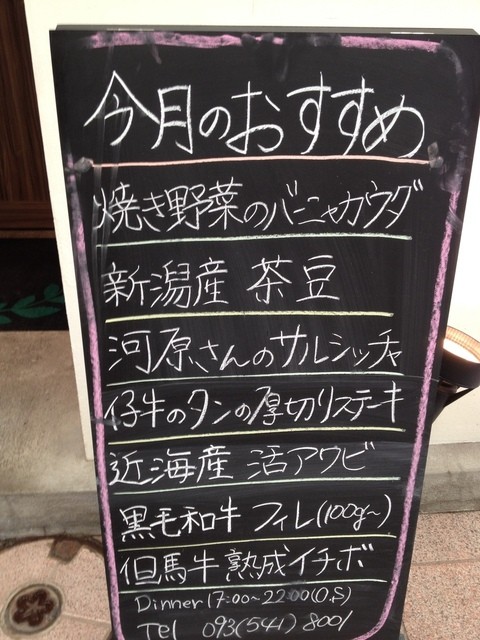 今月のおすすめ
焼き野菜のバーニャカウダ
新潟産 茶豆
河原さんのサルシッチャ
仔牛のタンの厚切りステーキ
近海産 活アワビ
黒毛和牛 フィレ(100g~)
但馬牛熟成イチボ
Dinner 17:00~22:00(O,S)
Tel 093(541)8001